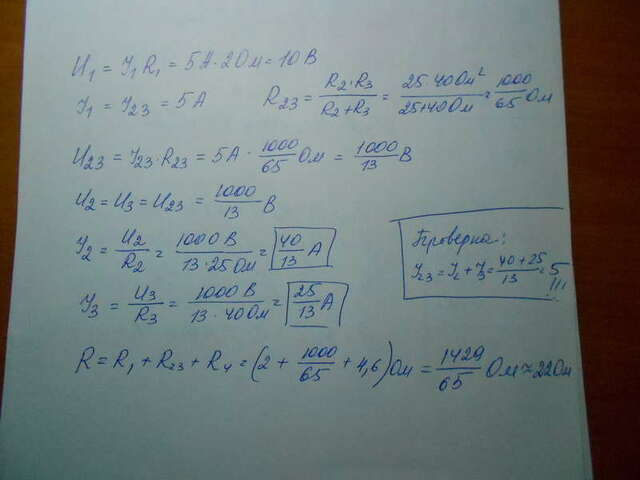 U₁ = I₁ R₁ = 5А · 2Ом = 10 В
I₁ = I₂₃ = 5 А
R₂₃ = R₂·R₃ / R₂+R₃ = 25·40 Ом² / 25+40 Ом = 1000/65 Ом
U₂₃ = I₂₃ · R₂₃ = 5А · 1000/65 Ом = 1000/13 В
U₂ = U₃ = U₂₃ = 1000/13 В
I₂ = U₂/R₂ = 1000 В / 13·25 Ом = 40/13 А
Проверка:
I₂₃ = I₂ + I₃ = 40+25 / 13 = 5 !!!
I₃ = U₃/R₃ = 1000 В / 13·40 Ом = 25/13 А
R = R₁ + R₂₃ + R₄ = (2 + 1000/65 + 4,6) Ом = 1429/65 Ом ≈ 22 Ом